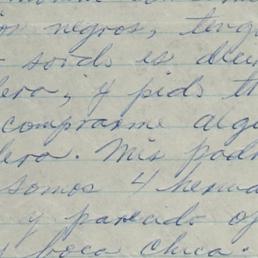 negros, teng
sords es deu
lero, y pids t
comprarme alg
lero. Mis padr
somos 4 herma
y pareado o
boca chica.